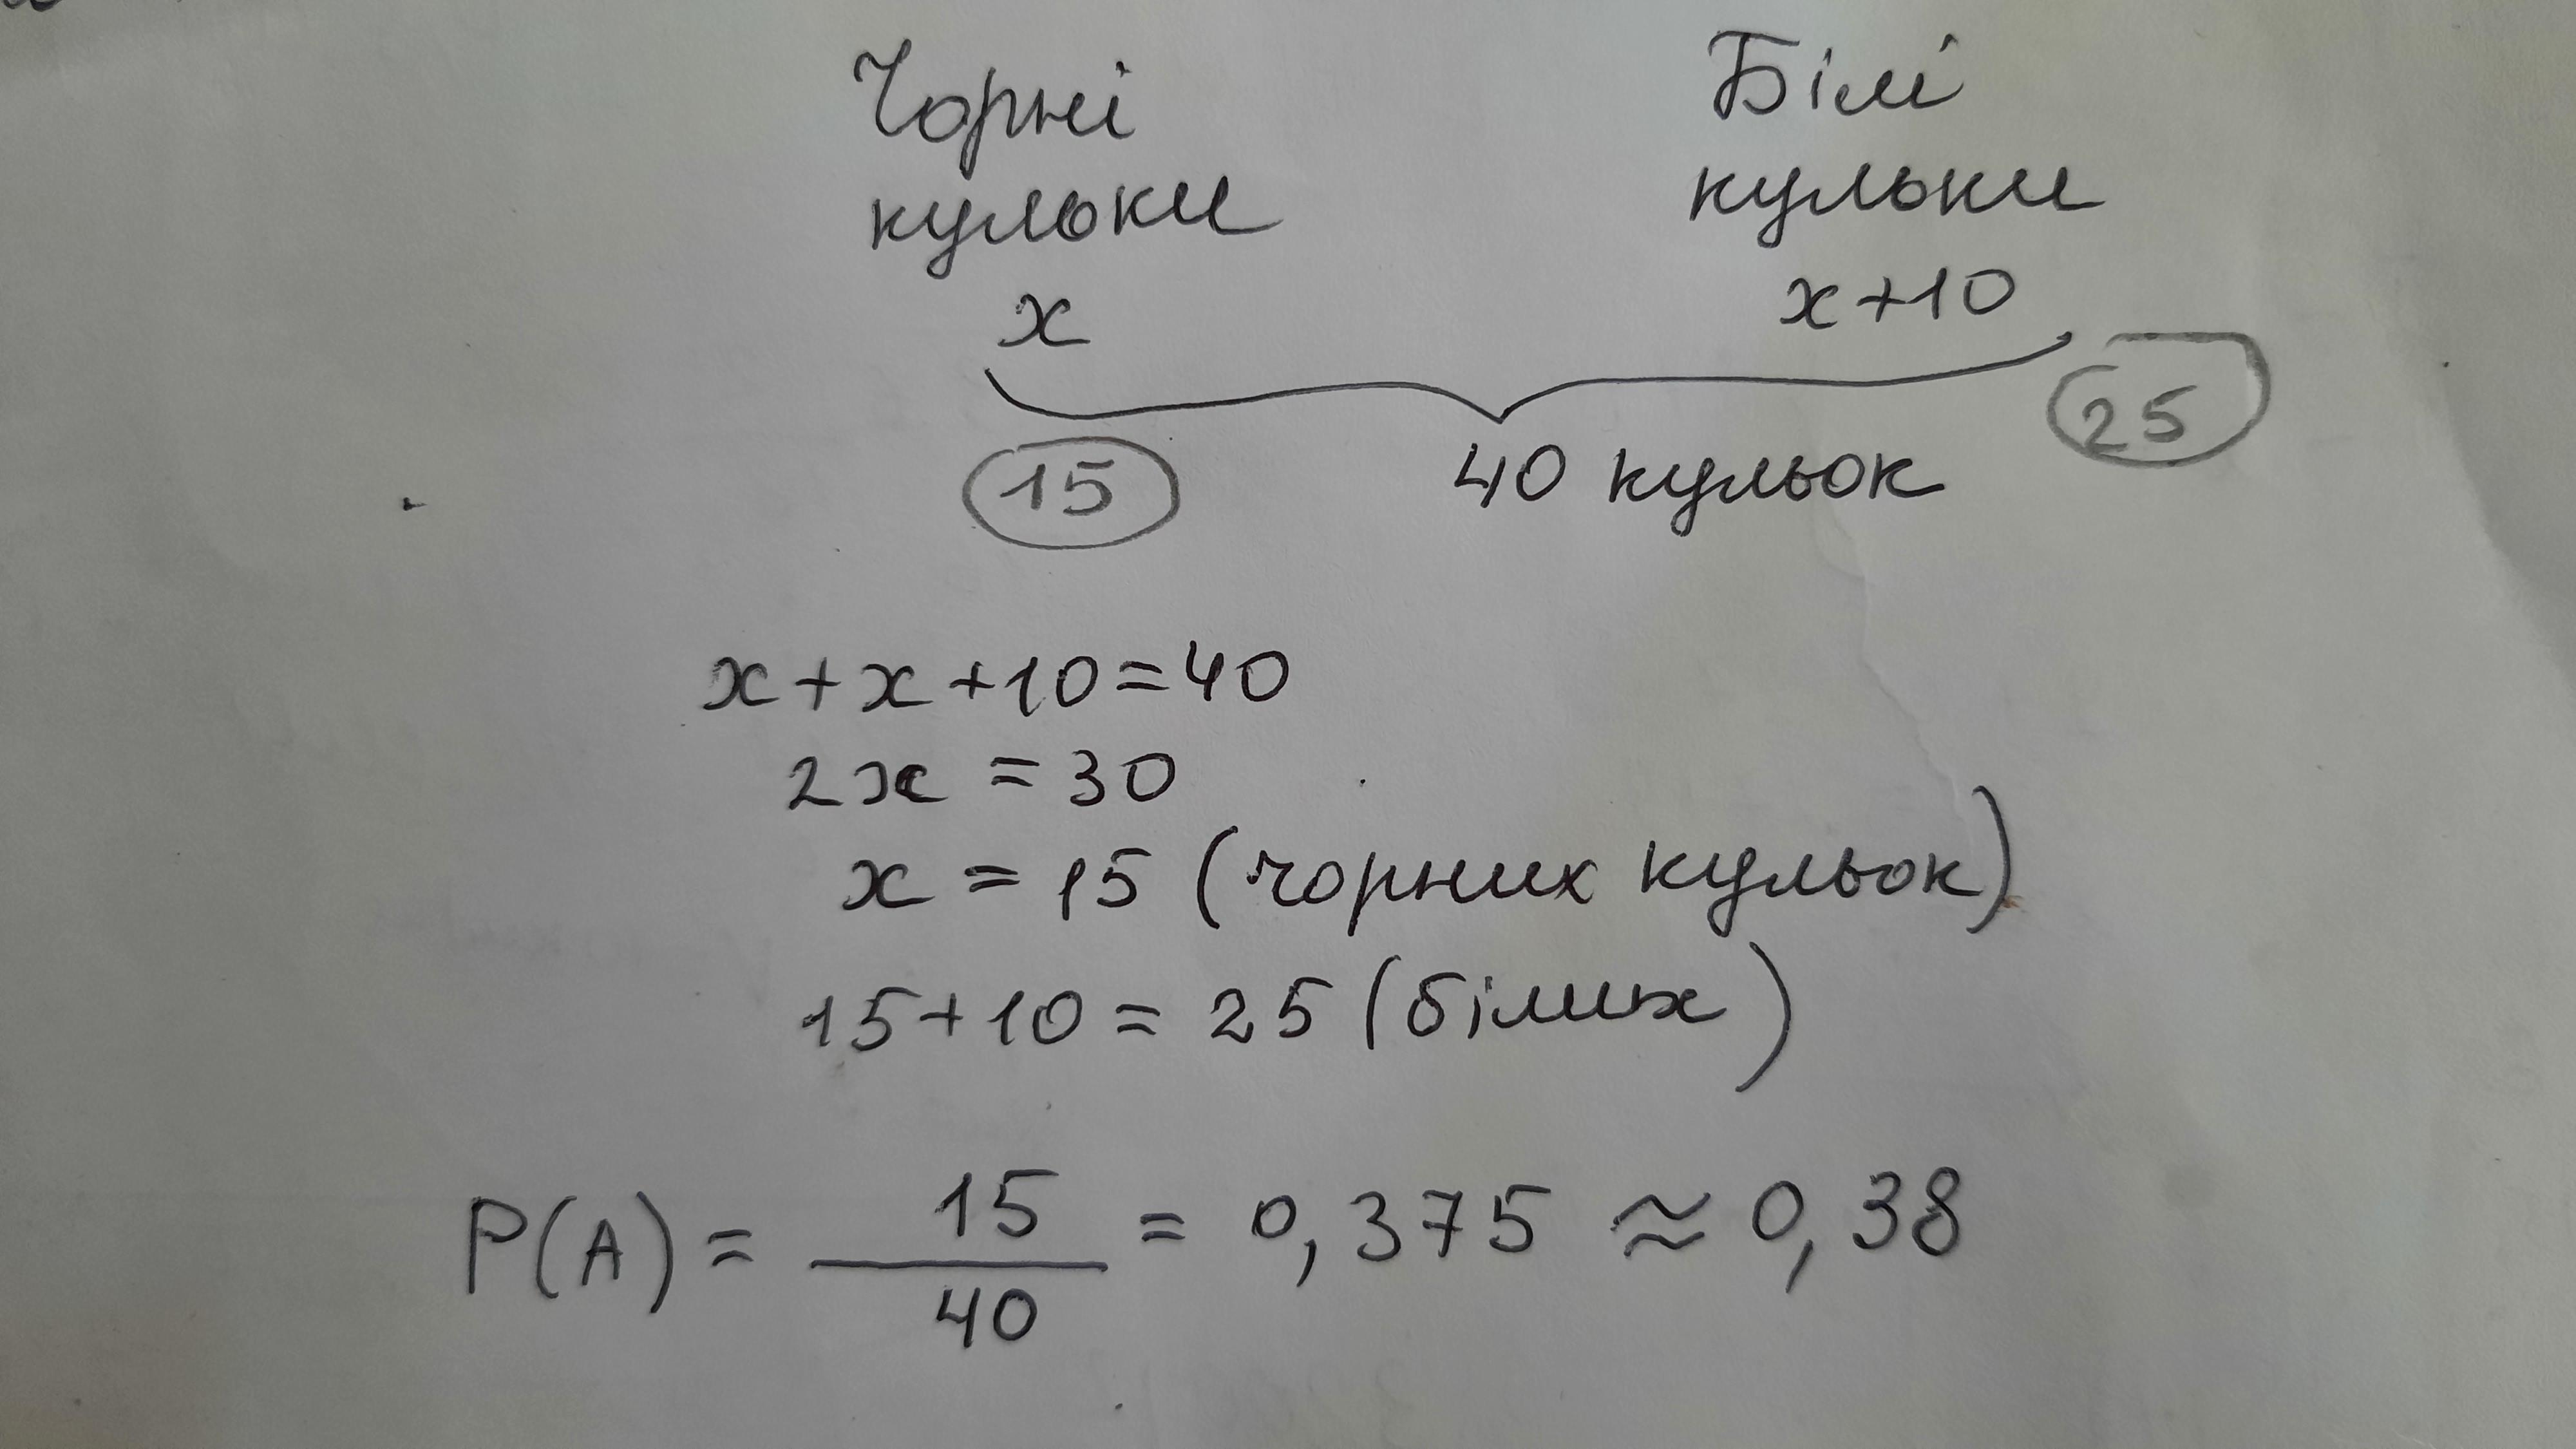 Чорні Білі
кульки кульки
x x+10
25
15 40 кульок
x+x+10=40
2x = 30
x = 15 (чорних кульок)
15+10 = 25 (білих)
P(A) = 15/40 = 0,375 ≈ 0,38